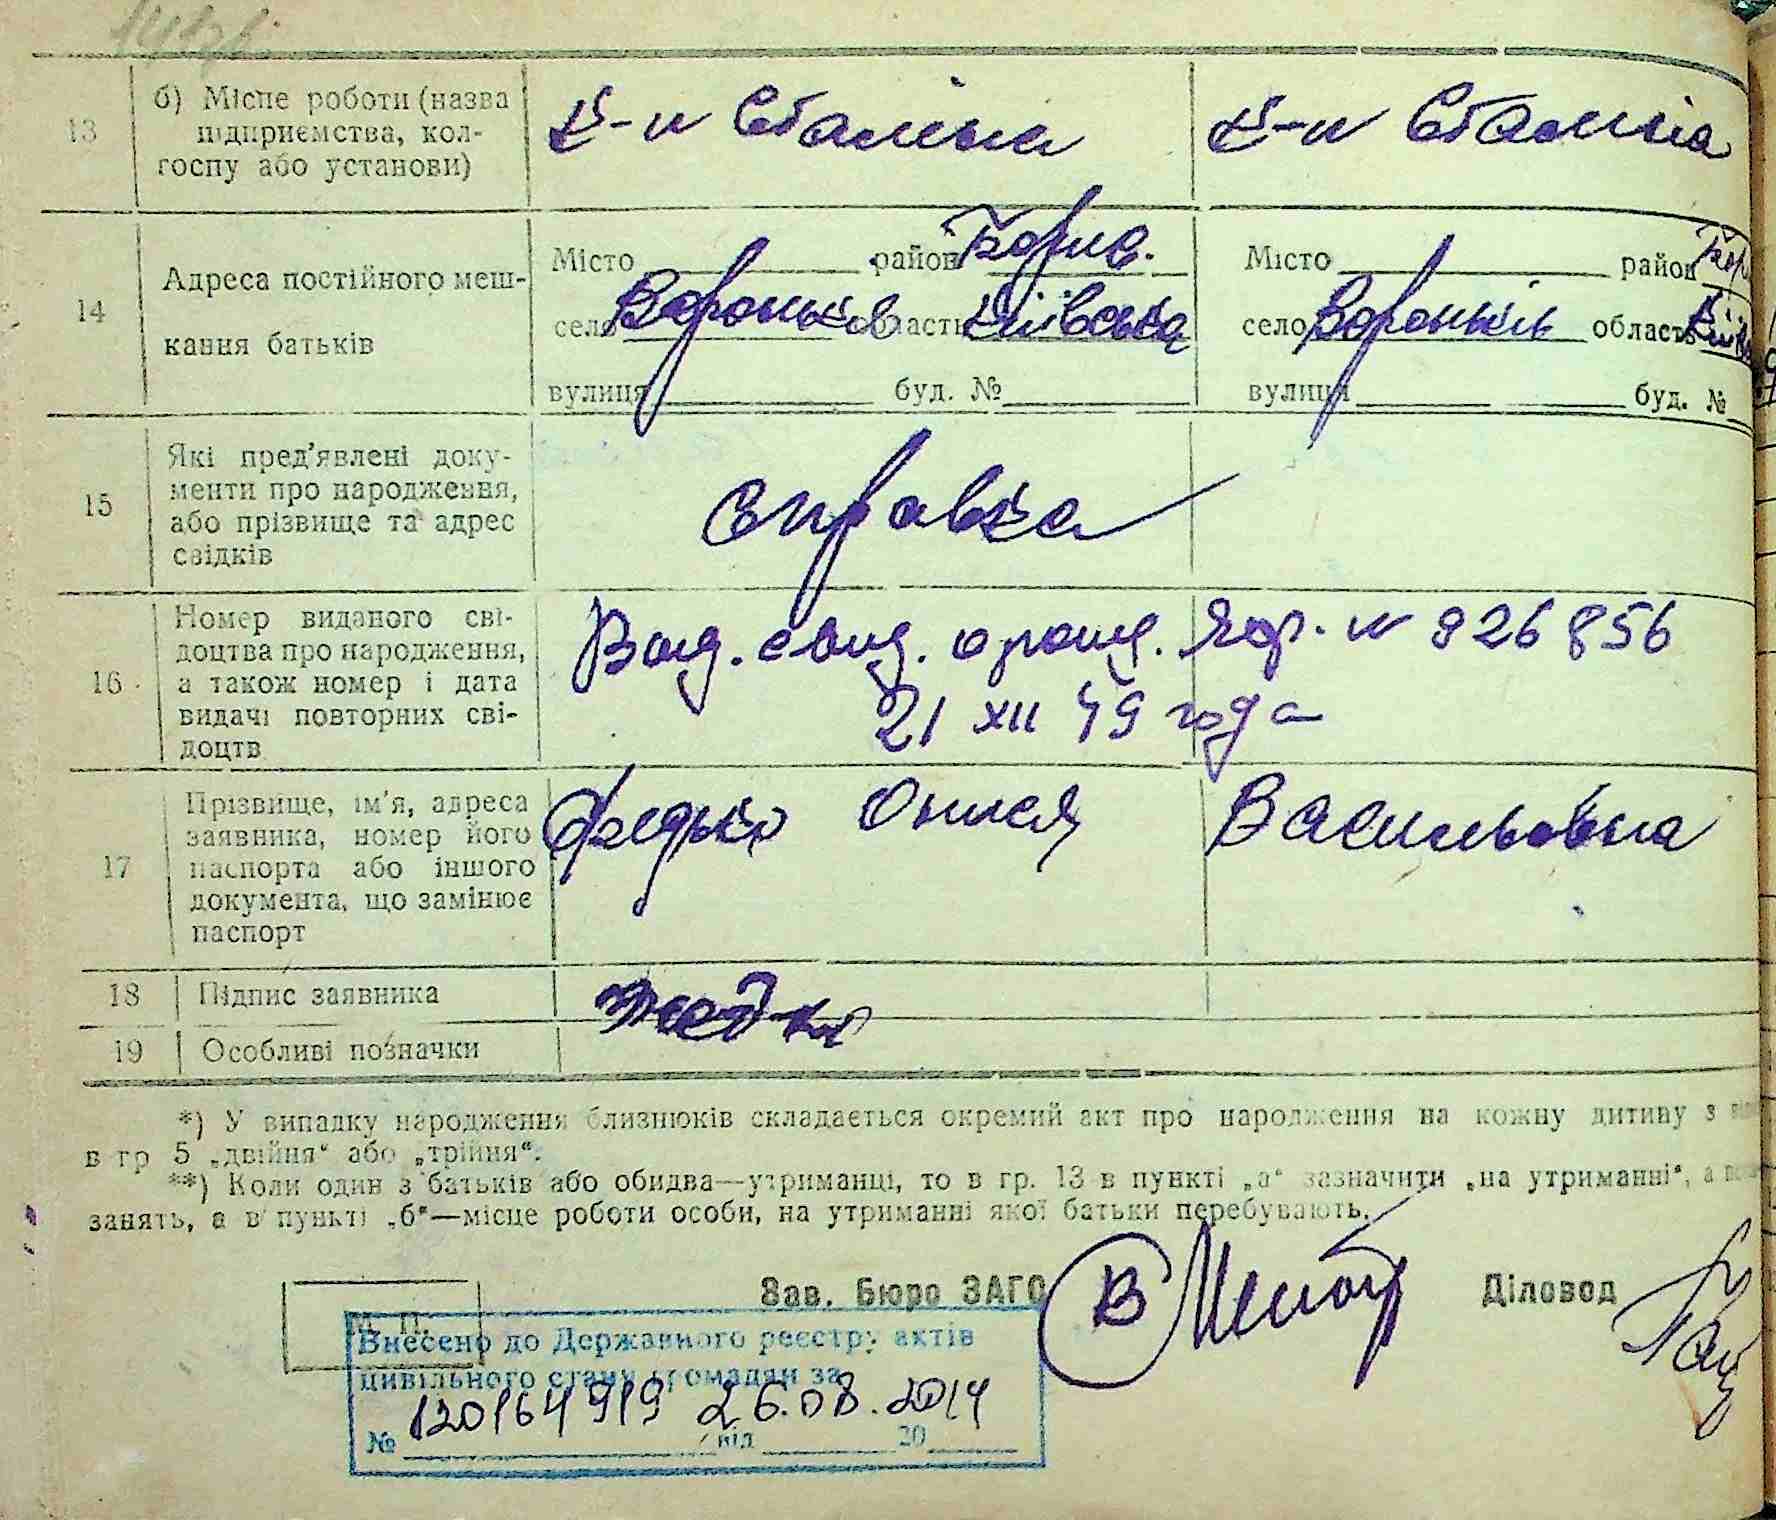 13
б) Місце роботи (назва
підприємства, кол-
госпу або установи)
к-п Сталіна
к-п Сталіна
14
Адреса постійного меш-
кання батьків
Місто район Борисп.
село Вороньків область Київська
вулиця буд. №
Місто район Бори
село Вороньків область Київ
вулиця буд. №
15
Які пред'явлені доку-
менти про народження,
або прізвище та адрес
свідків
Справка
16
Номер виданого сві-
доцтва про народження,
а також номер і дата
видачі повторних сві-
доцтв
Выд. свид. о рожд. № 926856
21 XII 49 года
17
Прізвище, ім'я, адреса
заявника, номер його
паспорта або іншого
документа, що замінює
паспорт
Федько Васильовна
18
Підпис заявника
19
Особливі позначки
*) У випадку народження близнюків складається окремий акт про народження на кожну дитину з
в гр 5 „двійня“ або „трійня“.
**) Коли один з батьків або обидва—утриманці, то в гр. 13 в пункті „а“ зазначити „на утриманні“, а
занять, а в пункті „б“—місце роботи особи, на утриманні якої батьки перебувають.
Зав. Бюро ЗАГС
Діловод
М. П.
Внесено до Державного реєстру актів
цивільного стану громадян за
№ 120164919 від 26.08.2014
20